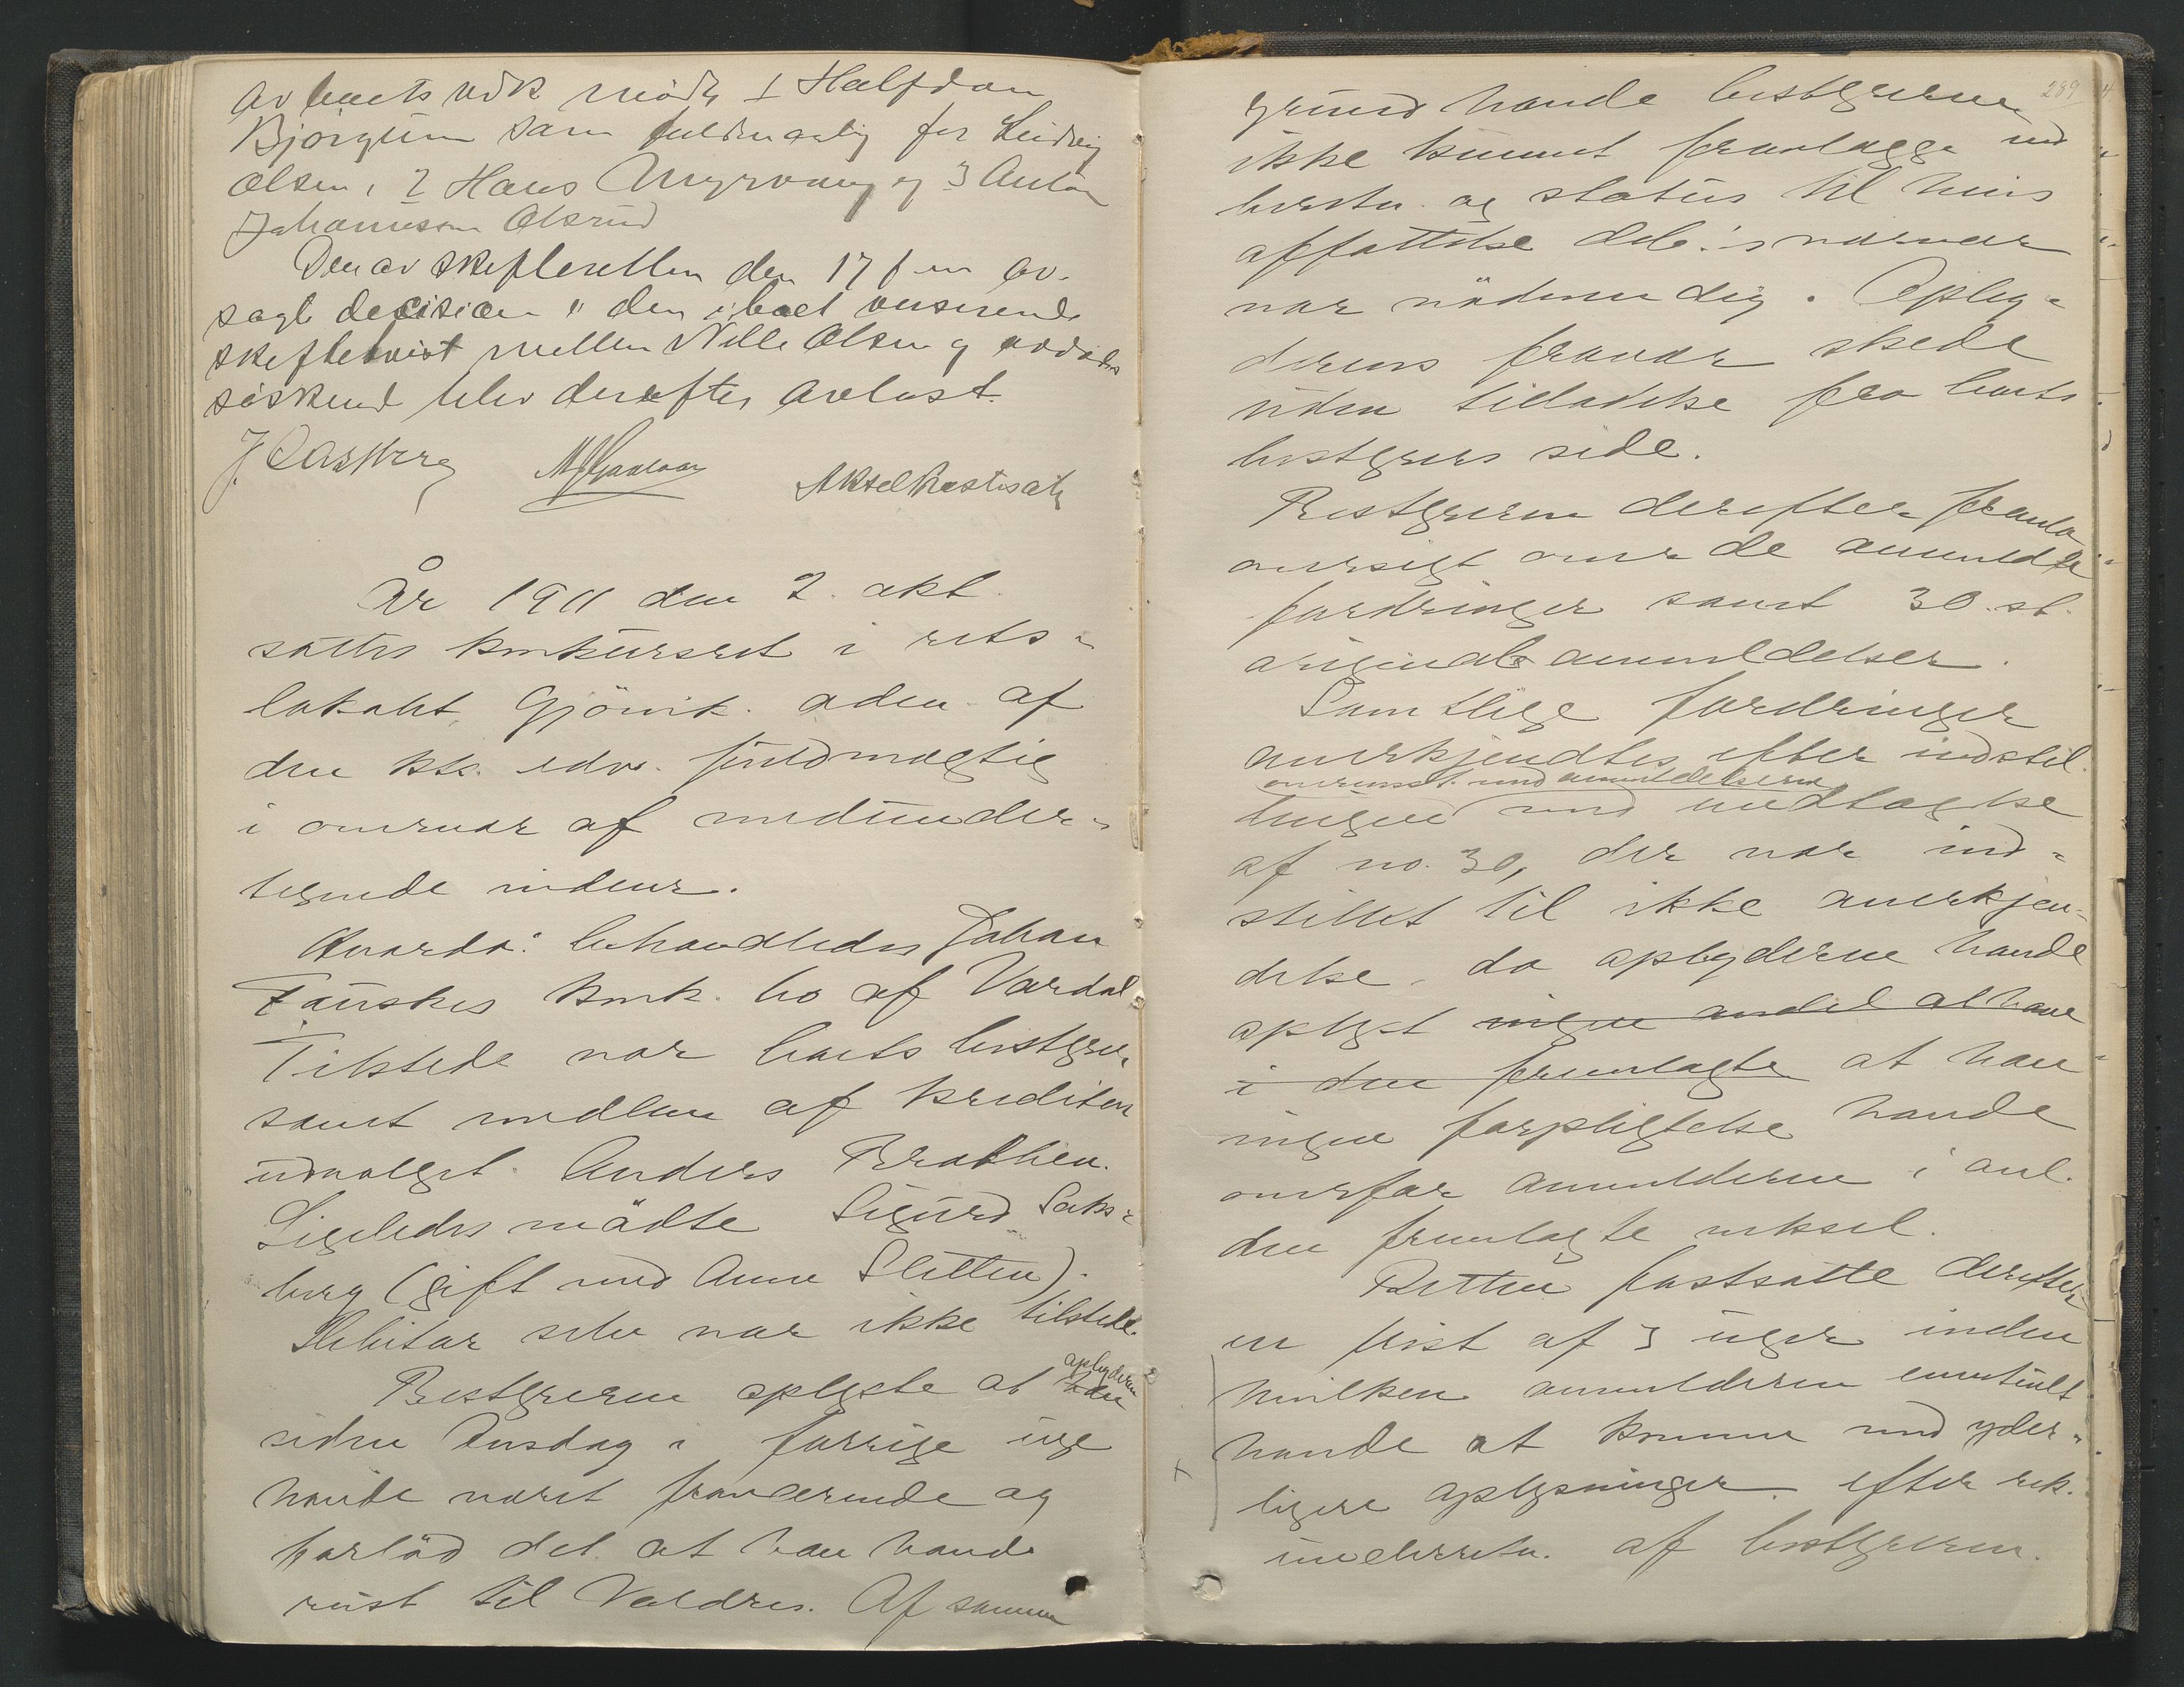 Av boets vedk mødte 1 Halfdan
Bjørgum som fuldmægtig for Ludvig
Olsen, 2 Hans Myrvang og 3 Anton
Johannessen Olsrud
Den av skifteretten den 17 f m av-
sagte decision i den i boet verserende
skiftetvist mellem Nille Olsen og avdødes
søskend blev derefter avlæst.
J. Aasberg Aksel Kastesæth
År 1911 den 2. okt.
sattes konkursret i rets-
lokalet Gjövik. aden. af
den kst. edsv. fuldmægtig
i overvær af medunder-
tegnede vidner.
Hvorda: behandledes Johan
Fauskes konk. bo af Vardal
Tilstede var boets bestyrer
samt medlem af kreditor
udvalget. Anders Bratlien.
Ligeledes mödte Sigurd Saks-
berg (gift med Anne Sletten).
Debitor selv var ikke tilstede.
Bestyreren oplyste at opbyderen
siden Onsdag i forrige uge
havde været fraværende og
forlød det at han havde
reist til Valdres. Af samme
289
grund havde bestyreren
ikke kunnet fremlægge ind
beretn. og status til hvis
affattelse deb:s nærvær
var nödvendig. Opby-
derens fravær skede
uden tilladelse fra boets
bestyrers side.
Bestyreren derefter fremla
oversigt over de anmeldte
fordringer samt 30 st.
originale anmeldelser.
Samtlige fordringer
anerkjendtes efter indstil-
overensst. med anmeldelserne
lingen med undtagelse
af no. 30, der var ind-
stillet til ikke anerkjen-
delse, da opbyderen havde
oplyst ingen andel at have
i den fremlagte at han
ingen forpligtelse havde
overfor anmelderen i anl.
den fremlagte veksel.
Retten fastsatte derefter
en frist af 3 uger inden
hvilken anmelderen eventuelt
havde at komme med yder-
ligere oplysninger efter rek.
underretn. af bestyreren.